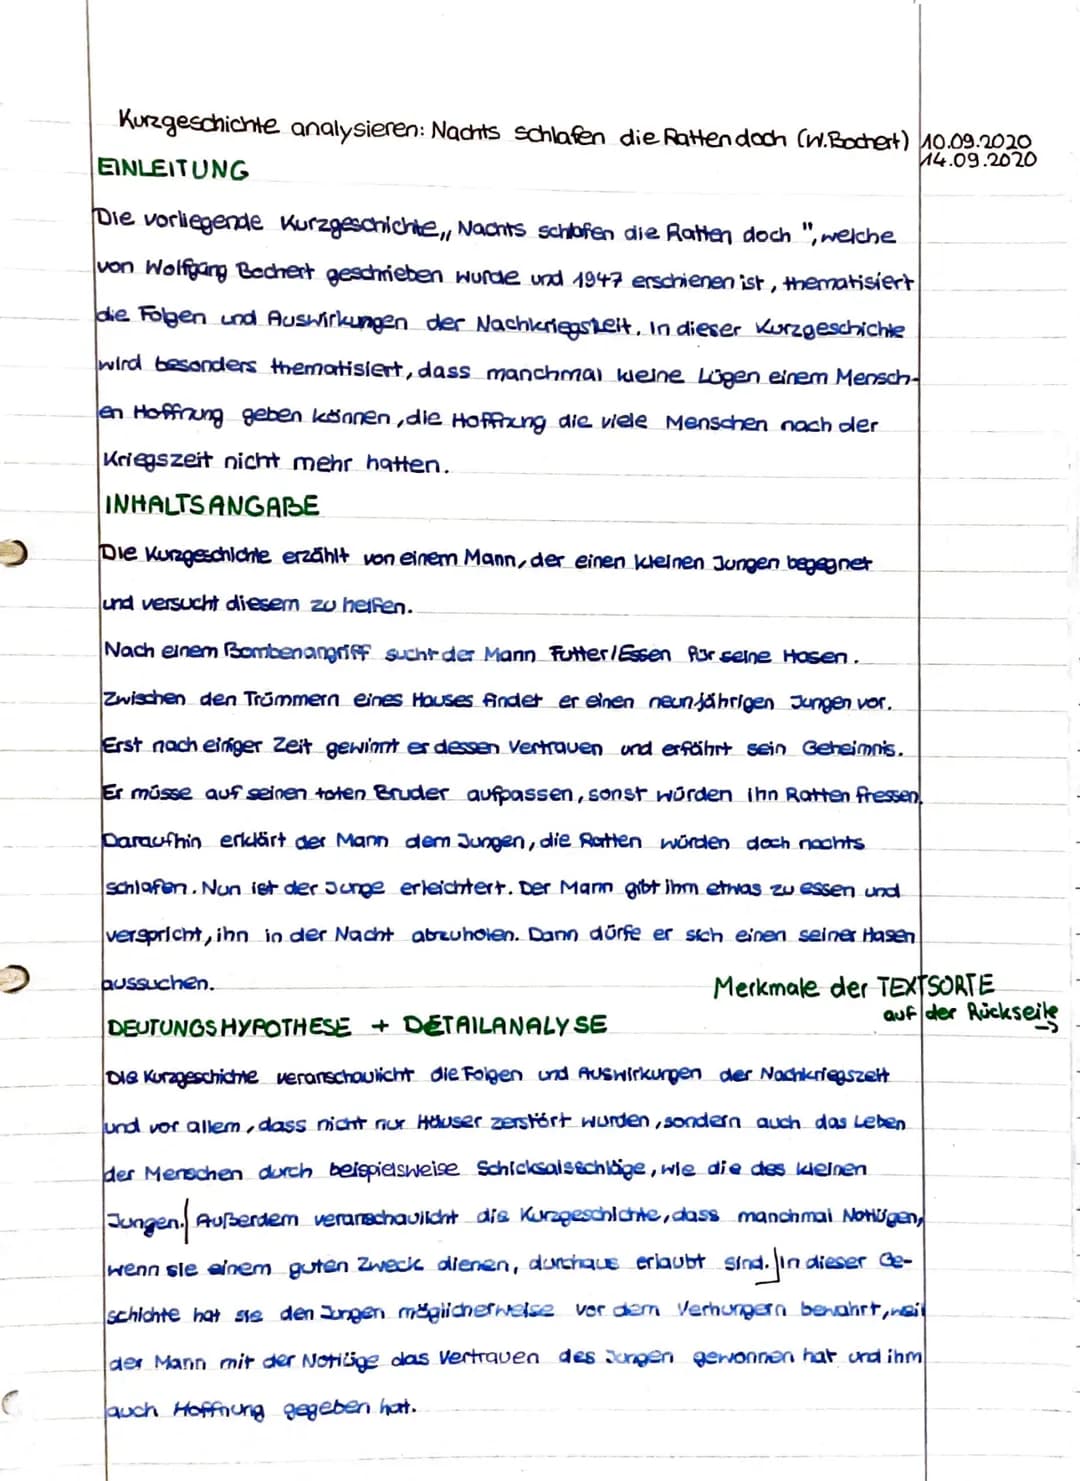 Kurzgeschichte analysieren: Nachts schlafen die Ratten doch (W. Bochert) 10.09.2020
14.09.2020
EINLEITUNG
Die vorliegende Kurzgeschichte „Nachts schlafen die Ratten doch", welche
von Wolfgang Bochert geschrieben wurde und 1947 erschienen ist, thematisiert
die Folgen und Auswirkungen der Nachkriegszeit. In dieser Kurzgeschichte
wird besonders thematisiert, dass manchmal kleine Lügen einem Mensch-
en Hoffnung geben können, die Hoffnung die viele Menschen nach der
Kriegszeit nicht mehr hatten.
INHALTSANGABE
Die Kurzgeschichte erzählt von einem Mann, der einen kleinen Jungen begegnet
und versucht diesem zu helfen.
Nach einem Bombenangriff sucht der Mann Futter/Essen für seine Hasen.
Zwischen den Trümmern eines Hauses findet er einen neunjährigen Jungen vor.
Erst nach einiger Zeit gewinnt er dessen Vertrauen und erfährt sein Geheimnis.
Er müsse auf seinen toten Bruder aufpassen, sonst würden ihn Ratten fressen.
Daraufhin erklärt der Mann dem Jungen, die Ratten würden doch nachts
schlafen. Nun ist der Junge erleichtert. Der Mann gibt ihm etwas zu essen und
verspricht, ihn in der Nacht abzuholen. Dann dürfe er sich einen seiner Hasen
aussuchen.
Merkmale der TEXTSORTE
auf der Rückseite →
DEUTUNGSHYPOTHESE + DETAILANALYSE
Die Kurzgeschichte veranschaulicht die Folgen und Auswirkungen der Nachkriegszeit
und vor allem, dass nicht nur Häuser zerstört wurden, sondern auch das Leben
der Menschen durch beispielsweise Schicksalsschläge, wie die des kleinen
Jungen. Außerdem veranschaulicht die Kurzgeschichte, dass manchmal Notlügen,
wenn sie einem guten Zweck dienen, durchaus erlaubt sind. In dieser Ge-
schichte hat sie den Jungen möglicherweise vor dem Verhungern bewahrt, weil
der Mann mit der Notlüge das Vertrauen des Jungen gewonnen hat und ihm
auch Hoffnung gegeben hat.